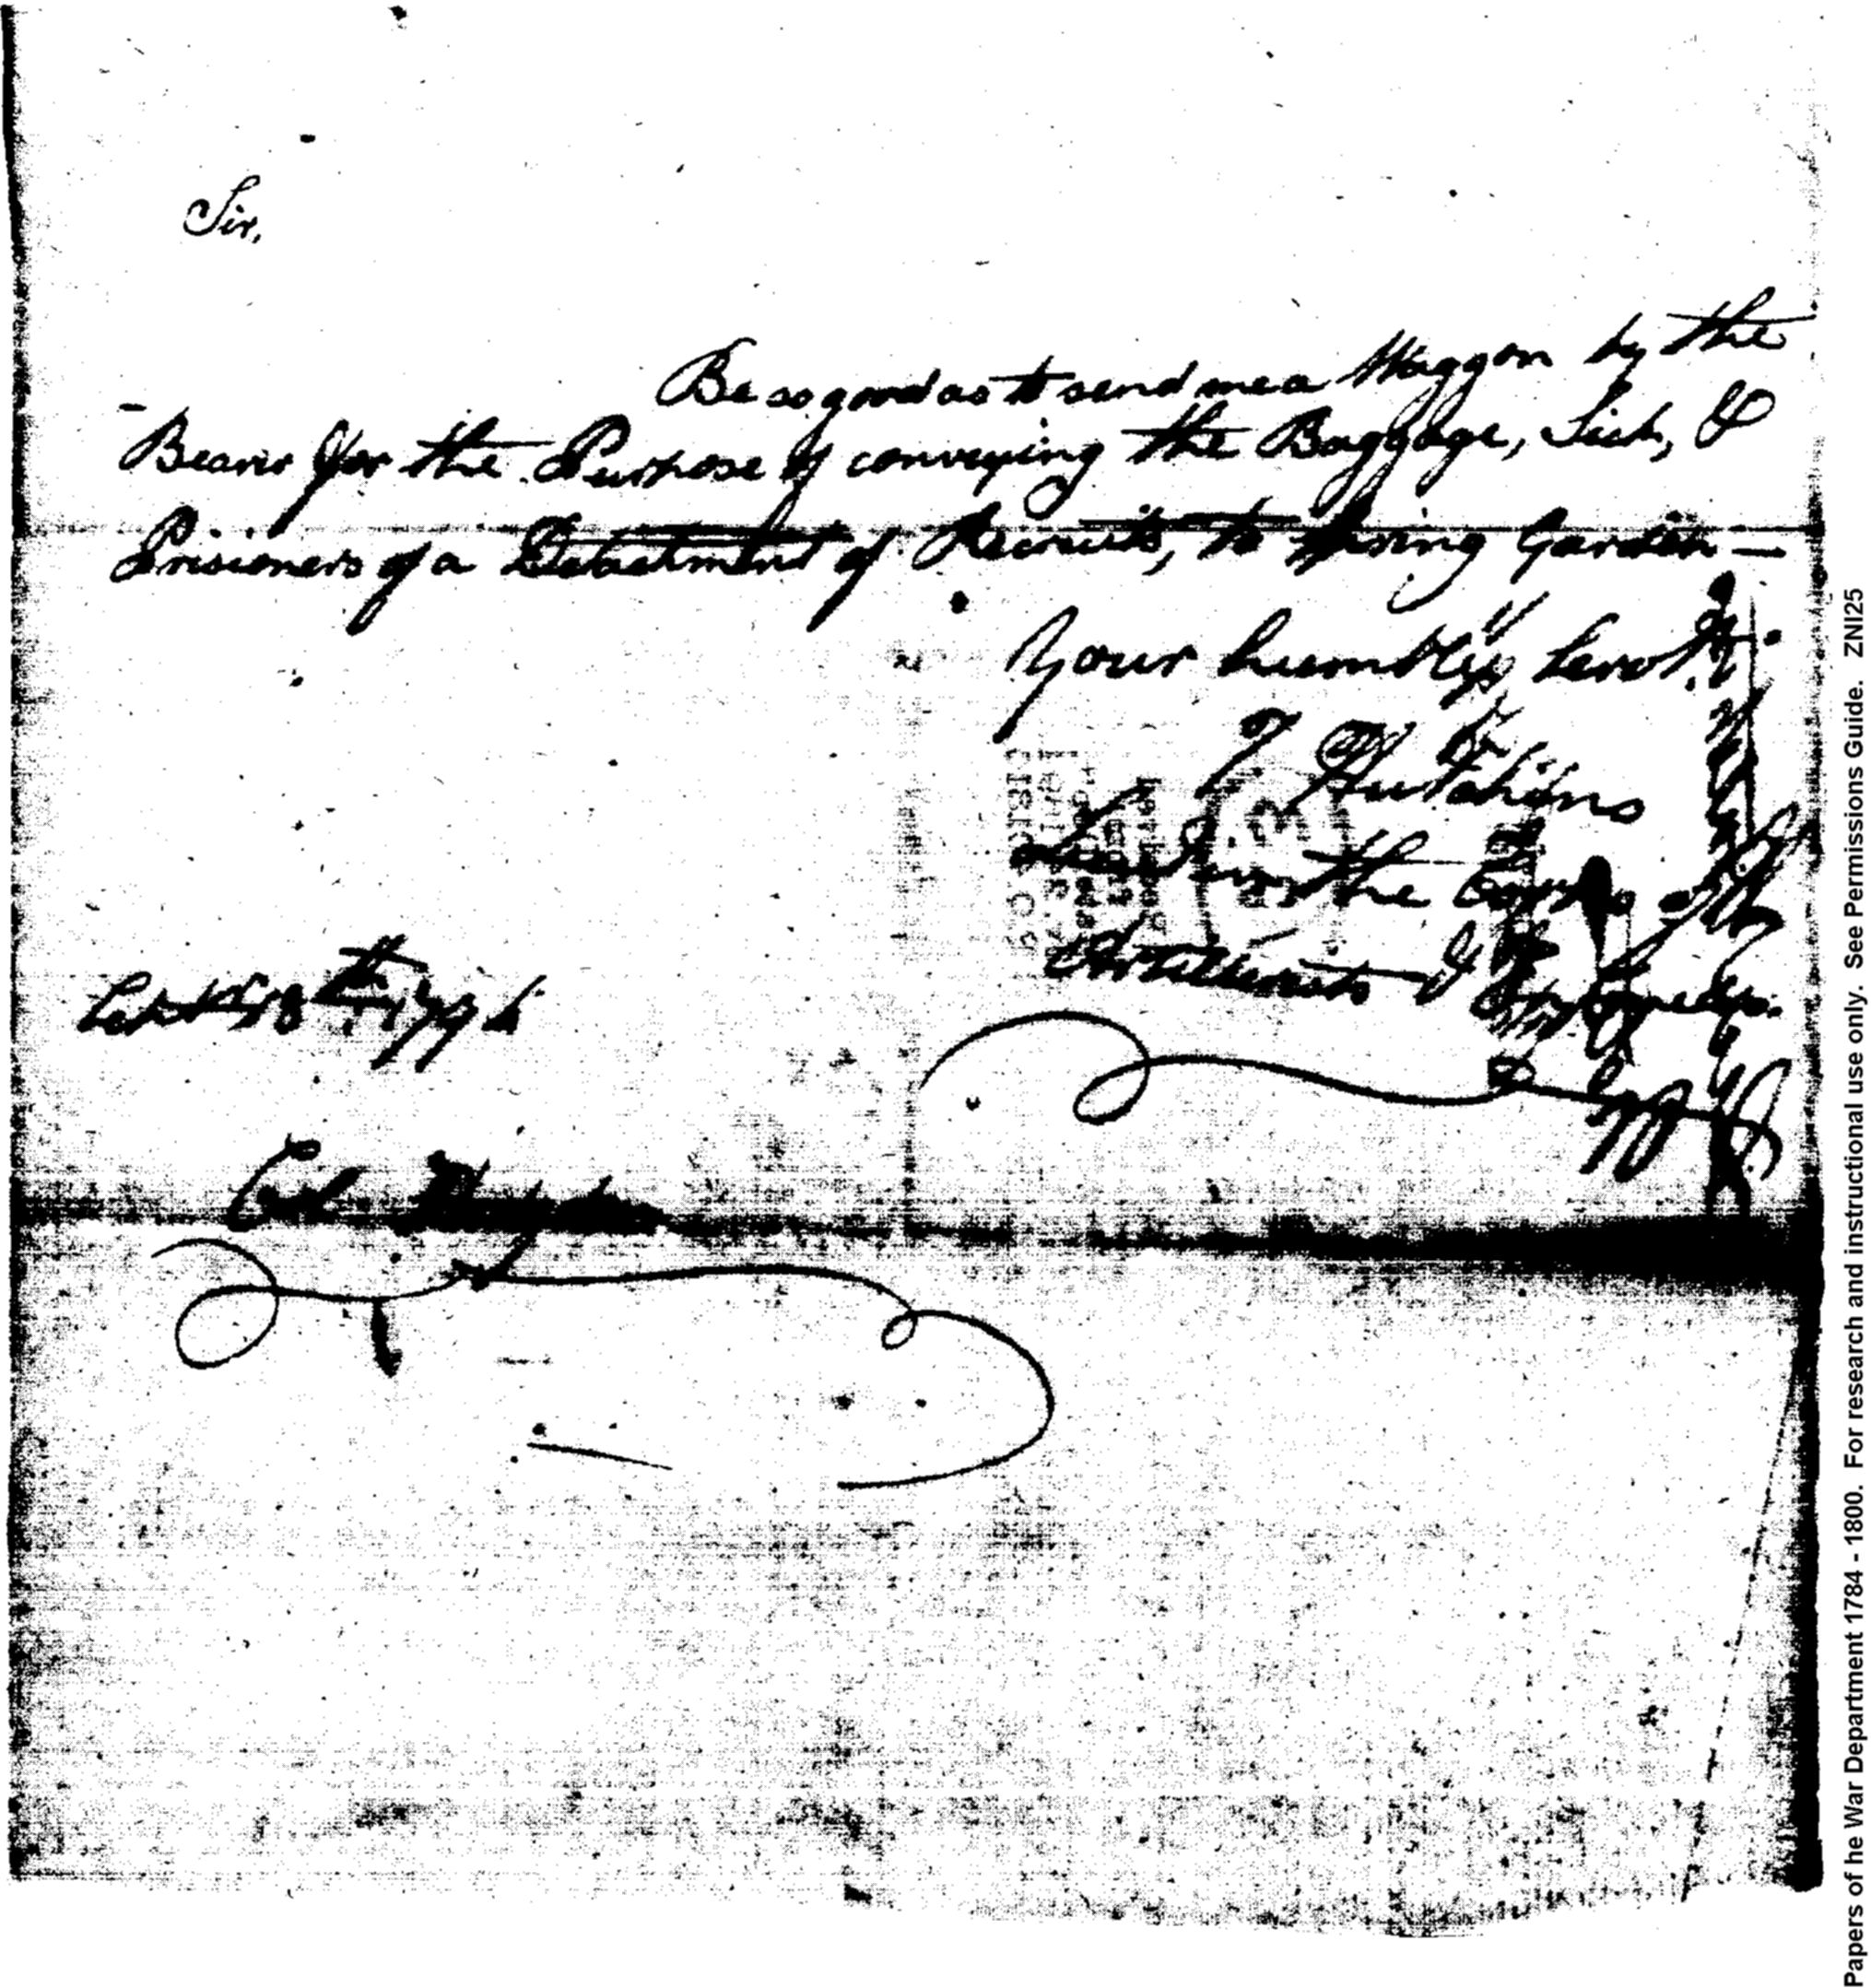 Sir,
Be so good as to send me a Waggon by the
Bearer for the Purpose of conveying the Baggage, Sick, &
Prisioners of a Detachment of Recruits, to Spring Garden —
Your humble Servt.
Hutchins
Lieut in the Corps of
Artillerists & Engineers.
Sept 18th 179
Col.
Papers of he War Department 1784 - 1800. For research and instructional use only. See Permissions Guide. ZNI25